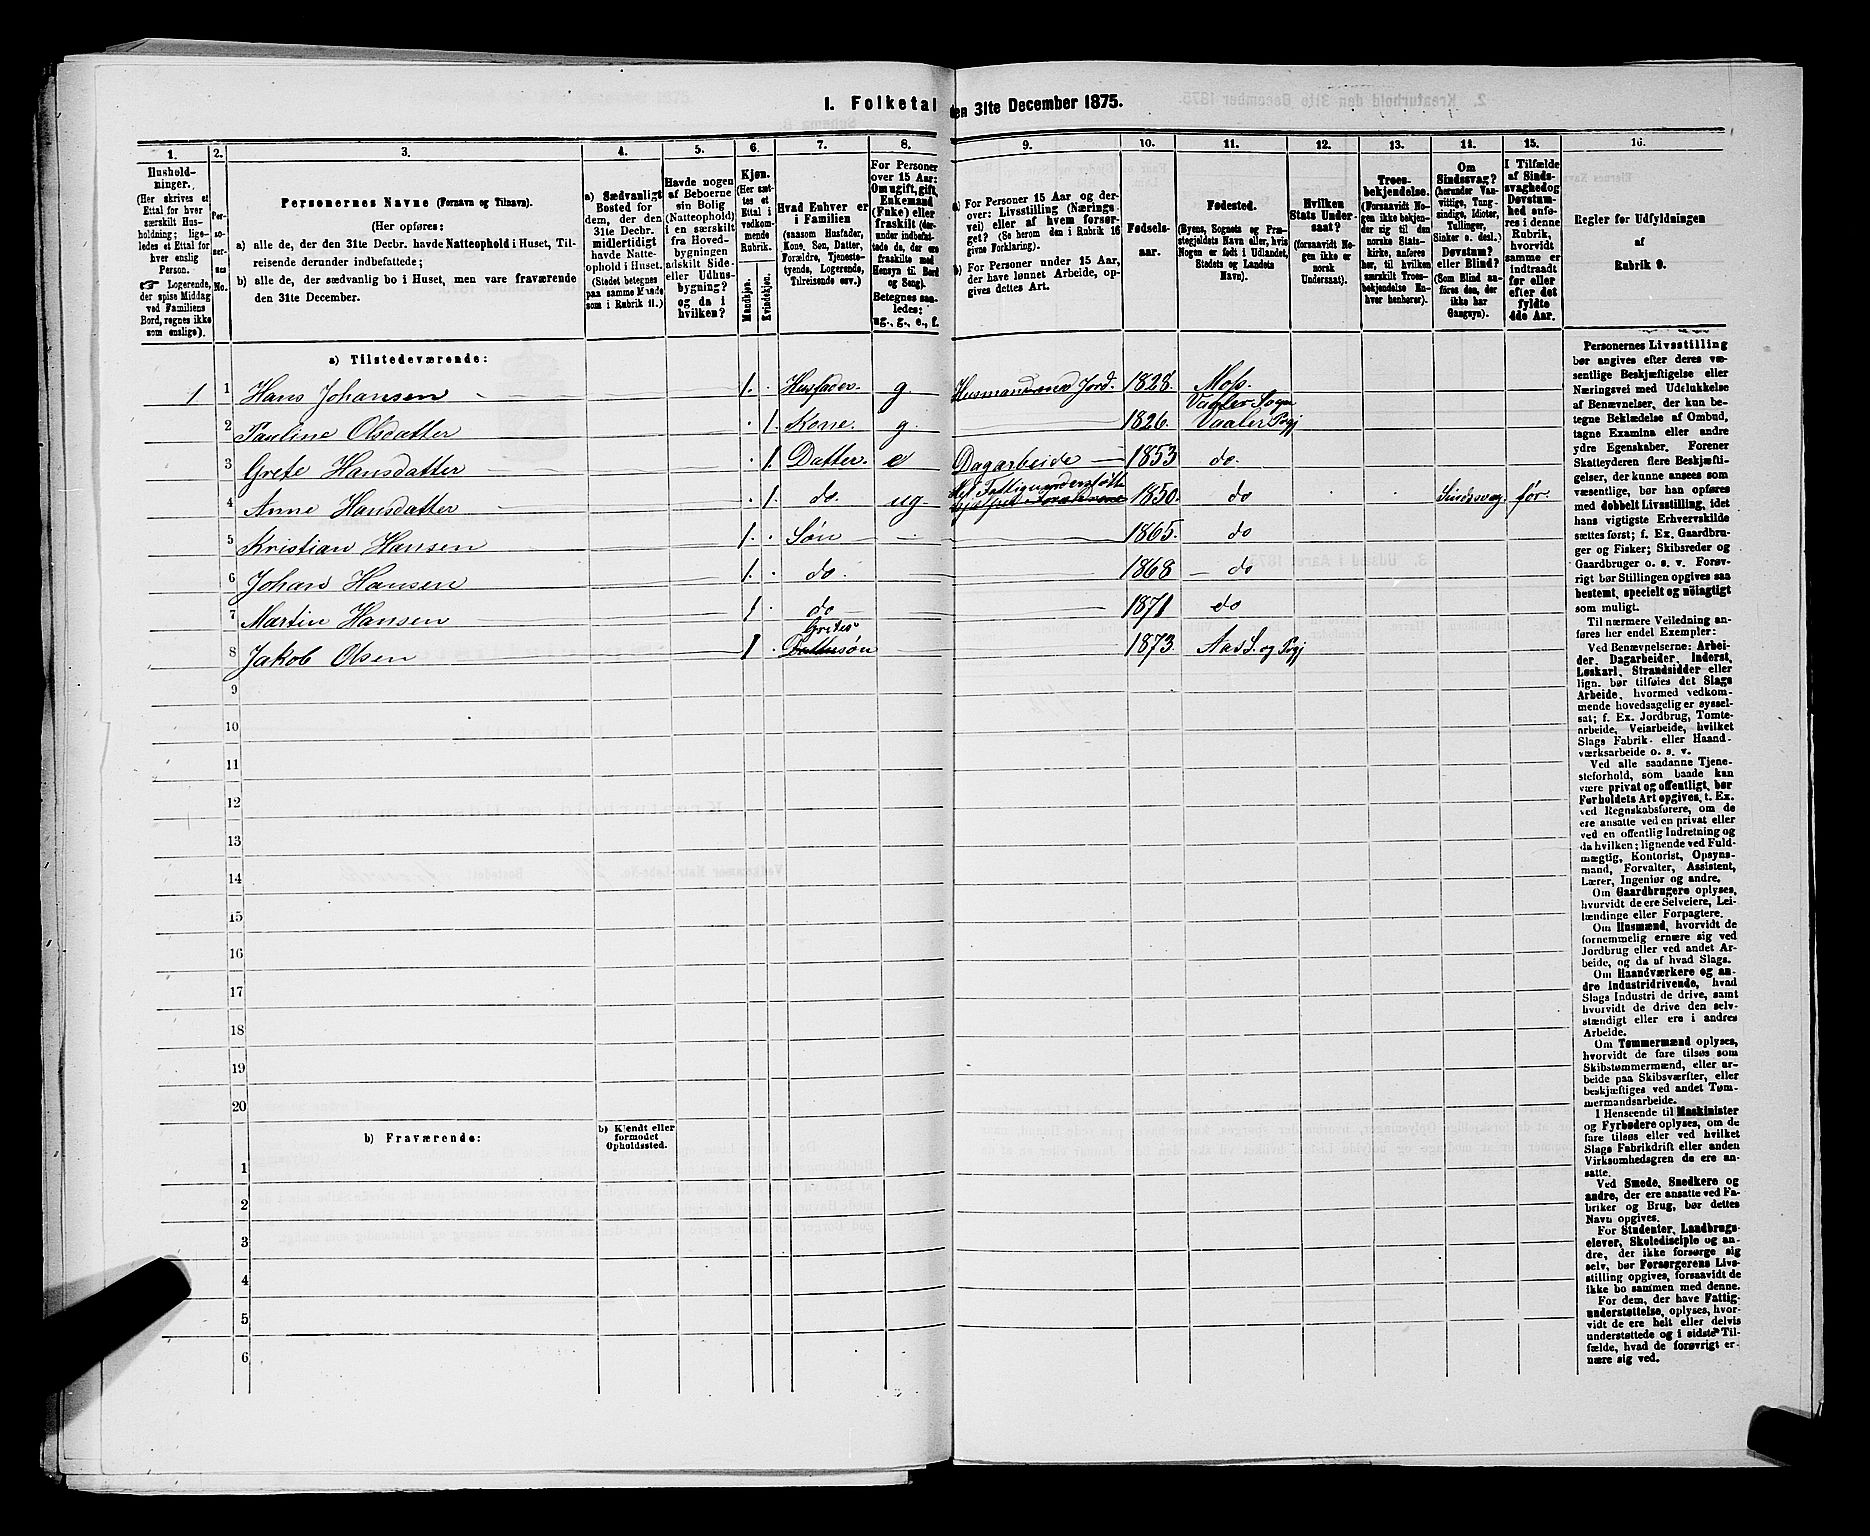 I. Folketal den 31te December 1875.
1. 2. 3. 4. 5. 6. 7. 8. 9. 10. 11. 12. 13. 14. 15. 16.
Hushold-
ninger.
(Her skrives et
Ettal for hver
særskilt Hus-
holdning; lige-
ledes et Ettal for
hver enslig
Person.
☞ Logerende,
der spise Middag
ved Familiens
Bord, regnes ikke
som enslige).
Personernes Navne (Fornavn og Tilnavn).
(Her opføres:
a) alle de, der den 31te Decbr. havde Natteophold i Huset, Til-
reisende derunder indbefattede;
b) alle de, der sædvanlig bo i Huset, men vare fraværende
den 31te December.
a) Sædvanligt
Bosted for
dem, der den
31te Decbr.
midlertidigt
havde Natte-
ophold i Huset.
(Stedet betegnes
paa samme Maade
som i Rubrik 11.)
Havde nogen
af Beboerne
sin Bolig
(Natteophold)
i en særskilt
fra Hoved-
bygningen
adskilt Side-
eller Udhus-
bygning?
og da i
hvilken?
Kjøn.
(Her sæt-
tes et
Ettal i
vedkom-
mende
Rubrik.
Mandkjøn.
Kvindekjøn.
Hvad Enhver er
i Familien
(saasom Husfader,
Kone, Søn, Datter,
Forældre, Tjeneste-
tyende, Logerende,
Tilreisende osv.)
For Personer
over 15 Aar:
Om ugift, gift,
Enkemand
(Enke) eller
fraskilt (der-
under indbefat-
tede de, der ere
fraskilte med
Hensyn til Bord
og Seng).
Betegnes saa-
ledes:
ug., g., e., f.
a) For Personer 15 Aar og der-
over: Livsstilling (Nærings-
vei) eller af hvem forsør-
get? (Se herom den i Rubrik 16
givne Forklaring).
b) For Personer under 15 Aar,
der have lønnet Arbeide, op-
gives dettes Art.
Fødsels-
aar.
Fødested.
(Byens, Sognets og Præ-
stegjeldets Navn eller, hvis
Nogen er født i Udlandet,
Stedets og Landets
Navn).
Hvilken
Stats Under-
saat?
(forsaavidt No-
gen ikke er
norsk
Undersaat).
Troes-
bekjendelse.
(Forsaavidt No-
gen ikke bekjen-
der sig til den
norske Stats-
kirke, anføres
her, til hvilken
særskilt Troes-
bekjendelse En-
hver henhører).
Om
Sindssvag?
(herunder Van-
vittige, Tung-
sindige, Idioter,
Tullinger,
Sinker o. desl.)
Døvstum?
eller Blind?
(Som Blind an-
føres den, der
ikke har
Gangsyn).
I Tilfælde
af Sinds-
svaghed og
Døvstum-
hed anfø-
res i denne
Rubrik,
hvorvidt
samme er
indtraadt
før eller
efter det
fyldte
4de Aar.
Regler for Udfyldningen
af
Rubrik 9.
a) Tilstedeværende:
1 1 Hans Johansen 1. Husfader. g Husmand med Jord. 1828. Moss.
2 Pauline Olsdatter 1. Kone. g. 1826. Vaaler Sogn Vaaler Prgj
3 Grete Hansdatter 1. Datter. e Dagarbeide 1853 do.
4 Anne Hansdatter 1. do. ug Fattigunderstøttet 1850. do Sindssvag. før.
5 Kristian Hansen 1. Søn 1865. do
6 Johan Hansen 1. do. 1868 do
7 Martin Hansen 1 do 1871 do
8 Jakob Olsen 1 Gretes søn 1873. Aas S. og Prgj
9
10
11
12
13
14
15
16
17
18
19
20
b) Fraværende:
b) Kjendt eller
formodet
Opholdssted.
1
2
3
4
5
6
Personernes Livsstilling
bør angives efter deres væ-
sentlige Beskjæftigelse eller
Næringsvei med Udelukkelse
af Benævnelser, der kun be-
tegne Beklædelse af Ombud,
tagne Examina eller andre
ydre Egenskaber. Forener
Skatteyderen flere Beskjæfti-
gelser, der kunne ansees som
væsentlige, bør han opføres
med dobbelt Livsstilling, idet
hans vigtigste Erhvervskilde
sættes først; f. Ex. Gaardbru-
ger og Fisker; Skibsreder og
Gaardbruger o. s. v. Forøv-
rigt bør Stillingen opgives saa
bestemt, specielt og nøiagtigt
som muligt.
Til nærmere Veiledning an-
føres her endel Exempler:
Ved Benævnelserne: Arbei-
der, Dagarbeider, Inderst,
Løskarl, Strandsidder eller
lign. bør tilføies det Slags
Arbeide, hvormed vedkom-
mende hovedsagelig er syssel-
sat; f. Ex. Jordbrug, Tomte-
arbeide, Veiarbeide, hvilket
Slags Fabrik- eller Haand-
værksarbeide o. s. v.
Ved alle saadanne Tjene-
steforhold, som baade kan
være privat og offentligt, bør
Forholdets Art opgives, t. Ex.
ved Regnskabsførere, om de
ere ansatte ved en privat eller
ved en offentlig Indretning og
da hvilken; lignende ved Fuld-
mægtig, Kontorist, Opsyns-
mand, Forvalter, Assistent,
Lærer, Ingeniør og andre.
Om Gaardbrugere oplyses,
hvorvidt de ere Selveiere, Lei-
lændinge eller Forpagtere.
Om Husmænd, hvorvidt de
fornemmelig ernære sig ved
Jordbrug eller ved andet Ar-
beide, og da af hvad Slags.
Om Haandværkere og an-
dre Industridrivende, hvad
Slags Industri de drive, samt
hvorvidt de drive den selv-
stændigt eller ere i andres
Arbeide.
Om Tømmermænd oplyses,
hvorvidt de fare tilsøs som
Skibstømmermænd, eller ar-
beide paa Skibsværfter, eller
beskjæftiges ved andet Tøm-
mermandsarbeide.
I Henseende til Maskinister
og Fyrbødere oplyses, om de
fare tilsøs eller ved hvilket
Slags Fabrikdrift eller anden
Virksomhedsgren de ere an-
satte.
Ved Smede, Snedkere og
andre, der ere ansatte ved Fa-
briker og Brug, bør dettes
Navn opgives.
For Studenter, Landbrugs-
elever, Skoledisciple og an-
dre, der ikke forsørge sig
selv, bør Forsørgerens Livs-
stilling opgives, forsaavidt de
ikke bo sammen med denne.
For dem, der have Fattig-
understøttelse, oplyses, hvor-
vidt de ere helt eller delvis
understøttede og i sidste Til-
fælde, hvad de forøvrigt er-
nære sig ved.